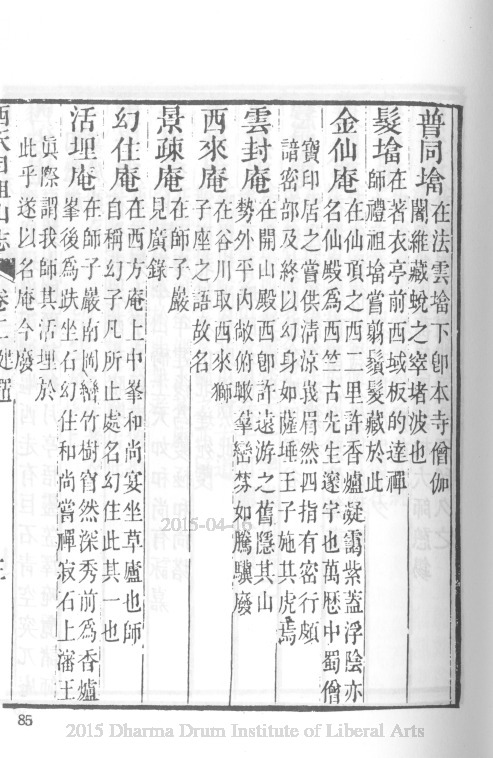 普同塔在法雲塔下卽本寺僧伽
闍維藏蛻之窣堵波也
髮塔在著衣亭前西域板的達禪
師禮祖塔嘗翦鬚髮藏於此
金仙庵在仙項之西二里許香爐凝靄紫蓋浮陰亦
名仙殿爲西竺古先生邃宇也萬歷中蜀僧
寶印居之嘗供淸涼峩眉然四指有密行頗
諳密部及終以幻身如薩埵王子施其虎焉
雲封庵在開山殿西卽許遠游之舊隱其山
勢外平內敞俯瞰羣巒棼如騰驥廢
西來庵在谷川取西來獅
子座之語故名
景疎庵在師子巖
見廣錄
幻住庵在西方庵上中峯和尚宴坐草廬也師
自稱幻子凡所止處名幻住此其一也
活埋庵在師子巖南岡巒竹樹窅然深秀前爲香爐
峯後爲趺坐石幻住和尚嘗禪寂石上瀋王
眞際謂我師其活埋於
此乎遂以名庵今廢
西天目祖山志 卷二 建置
85
2015-04-16
2015 Dharma Drum Institute of Liberal Arts